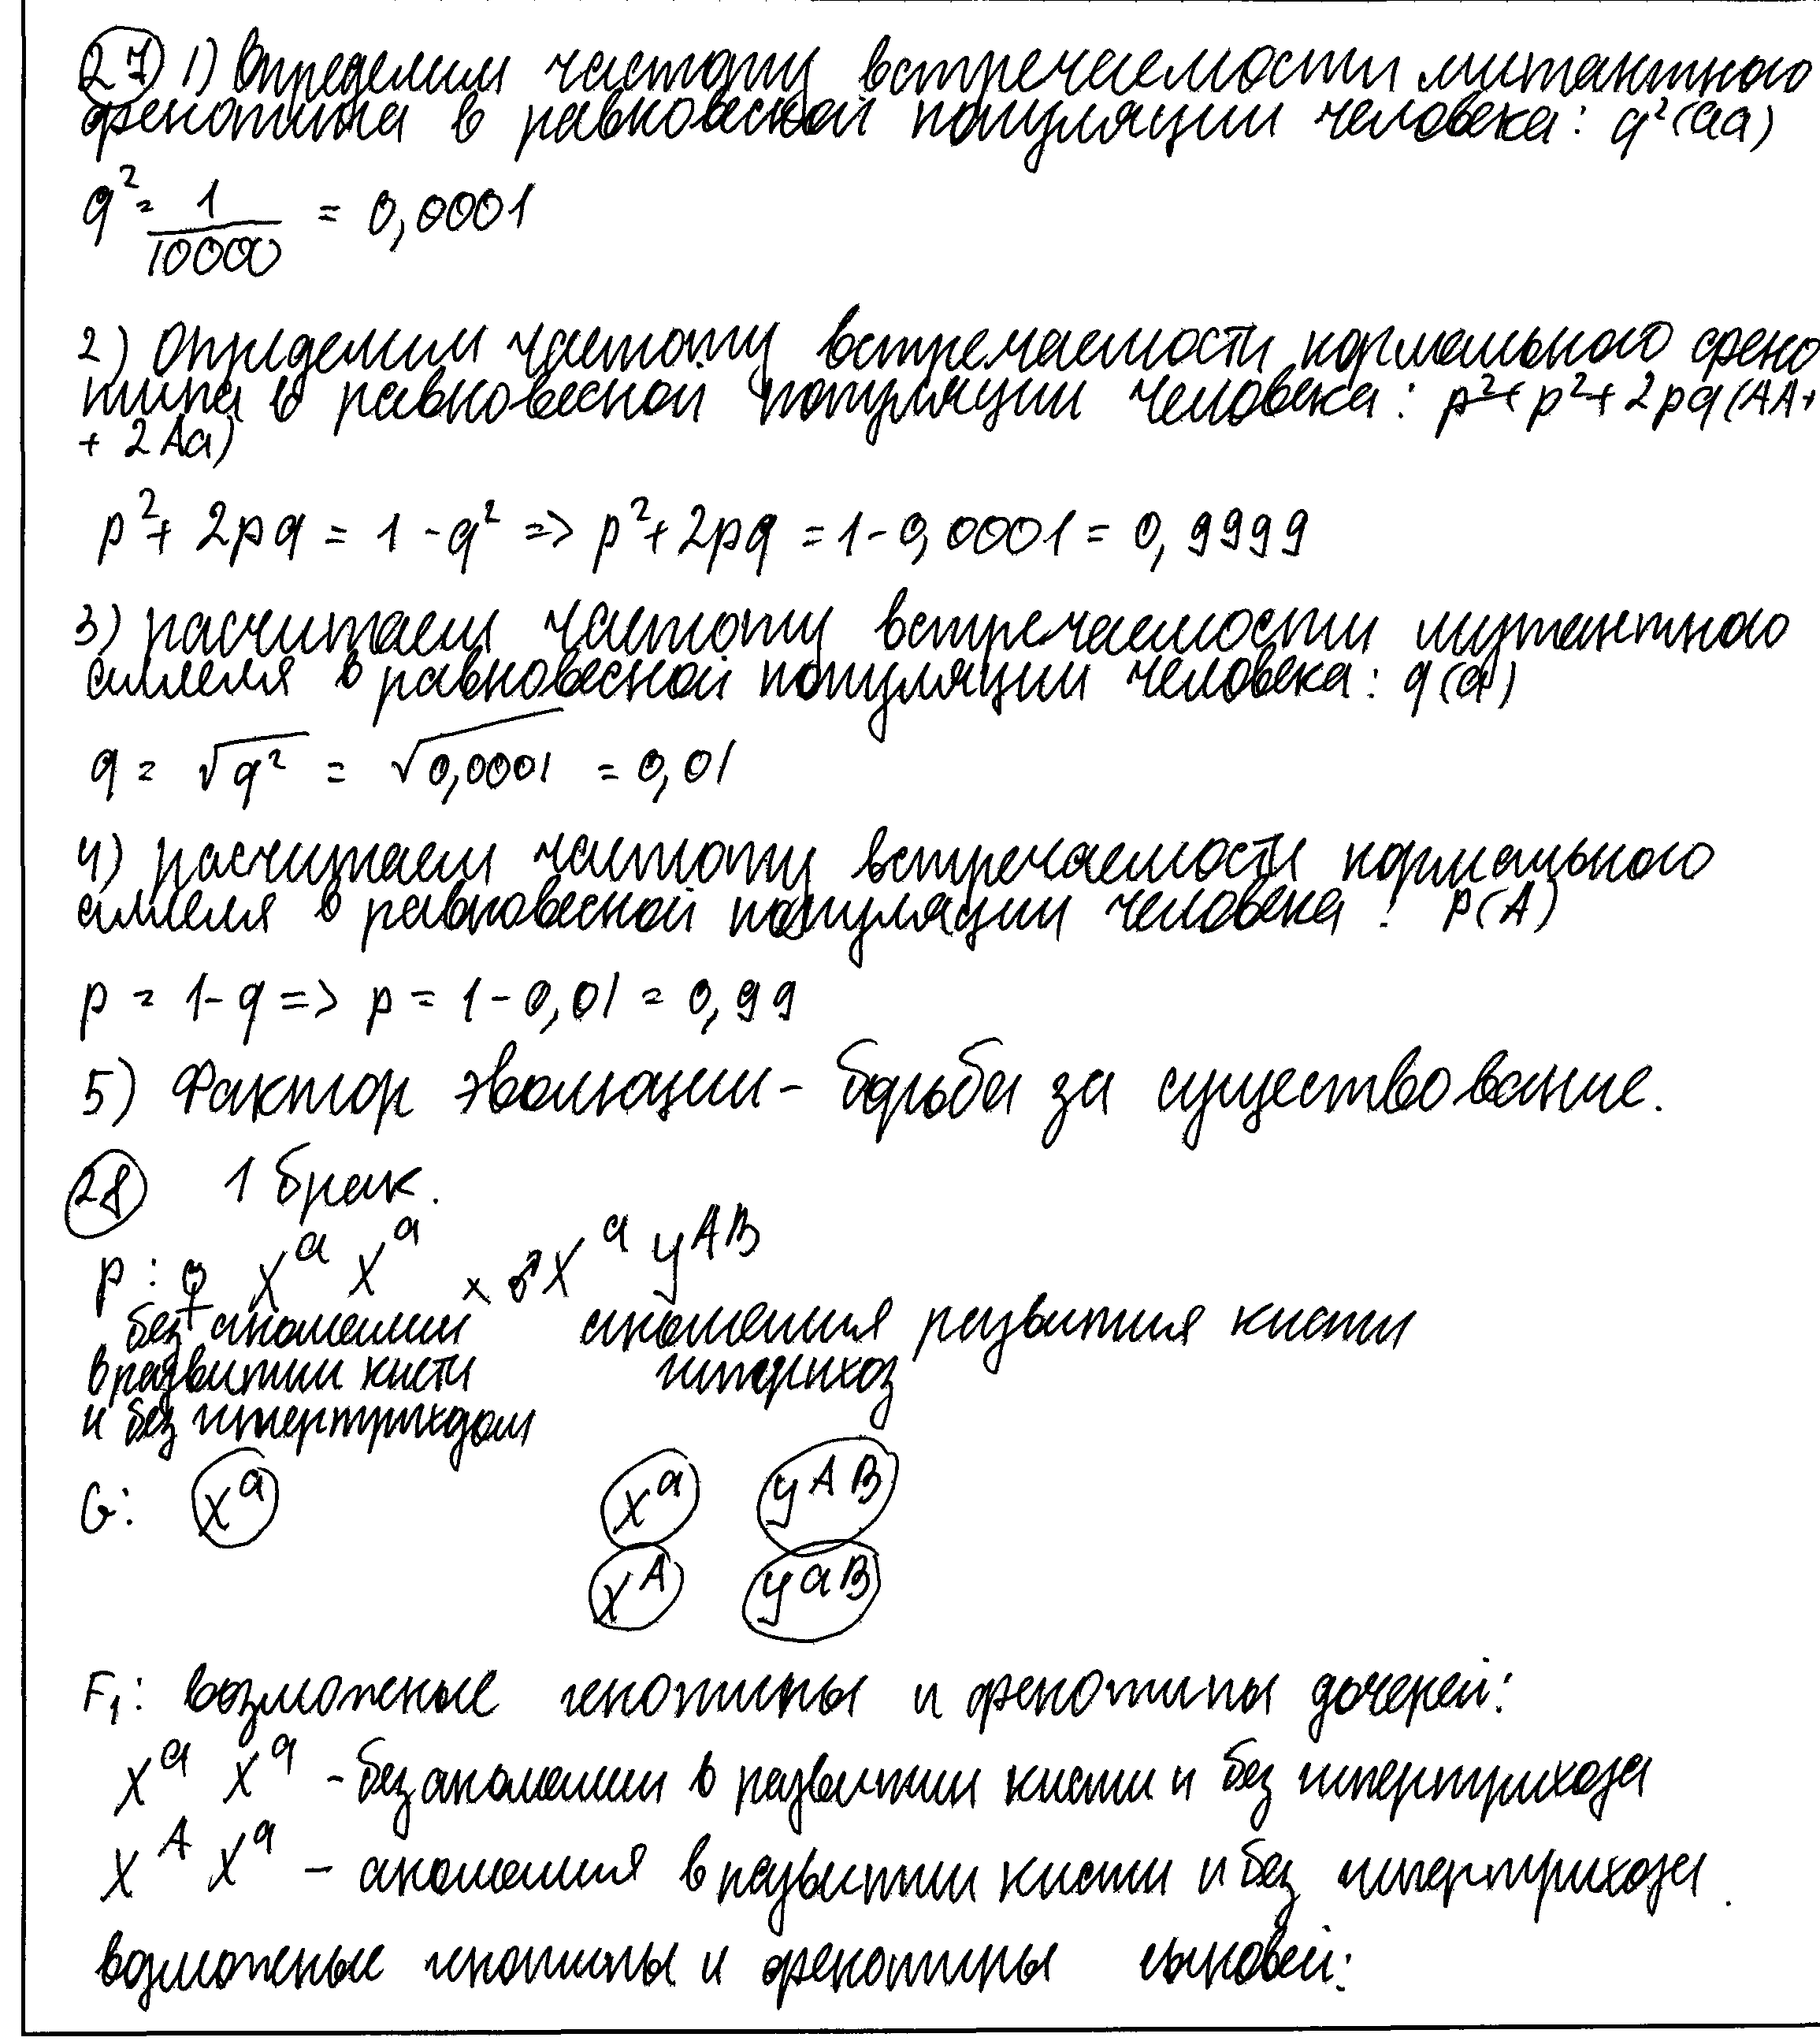 27) 1) Определим частоту встречаемости мутантного
фенотипа в равновесной популяции человека: q²(aa)
q² = 1/10000 = 0,0001
2) Определим частоту встречаемости нормального фено
типа в равновесной популяции человека: p²+ p²+ 2pq (AA+
+ 2Aa)
p²+ 2pq = 1 - q² => p²+ 2pq = 1 - 0,0001 = 0,9999
3) расчитаем частоту встречаемости мутантного
аллеля в равновесной популяции человека: q (a)
q = √q² = √0,0001 = 0,01
4) расчитаем частоту встречаемости нормального
аллеля в равновесной популяции человека: p(A)
p = 1 - q => p = 1 - 0,01 = 0,99
5) Фактор эволюции - борьба за существование.
28) 1 брак.
P: ♀ Xᵃ Xᵃ × ♂ Xᵃ Yᴬᴮ
без аномалии аномалия развития кисти
в развитии кисти гиперихоз
и без гипертриходом
G: Xᵃ Xᵃ Yᴬᴮ
Xᴬ Yᵃᴮ
F₁: возможные генотипы и фенотипы дочерей:
Xᵃ Xᵃ - без аномалии в развитии кисти и без гипертрихоза
Xᴬ Xᵃ - аномалия в развитии кисти и без гипертрихоза.
возможные генотипы и фенотипы сыновей: